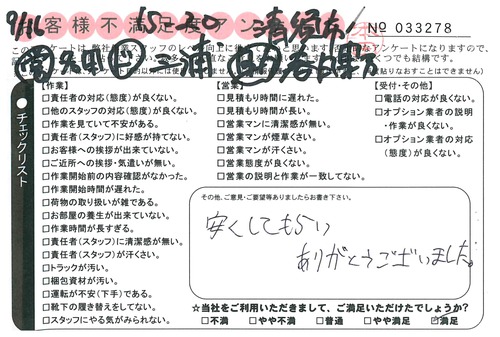 9/16 15-20 清須市
お客様不満足度アンケート
No 033278
チェックリスト
【作業】
□責任者の対応(態度)が良くない。
□他のスタッフの対応(態度)が良くない。
□作業を見ていて不安がある。
□責任者(スタッフ)に好感が持てない。
□お客様への挨拶が出来ていない。
□ご近所への挨拶・気遣いが無い。
□作業開始前の内容確認がなかった。
□作業開始時間が遅れた。
□荷物の取り扱いが雑である。
□お部屋の養生が出来ていない。
□作業時間が長すぎる。
□責任者(スタッフ)に清潔感が無い。
□責任者(スタッフ)が汗くさい。
□トラックが汚い。
□梱包資材が汚い。
□運転が不安(下手)である。
□靴下の履き替えをしてない。
□スタッフにやる気がみられない。
【営業】
□見積もり時間に遅れた。
□見積もり時間が長い。
□営業マンに清潔感が無い。
□営業マンが煙草くさい。
□営業マンが汗くさい。
□営業態度が良くない。
□営業の説明と作業が一致してない。
【受付・その他】
□電話の対応が良くない。
□オプション業者の説明
・作業が良くない。
□オプション業者の対応
(態度)が良くない。
その他、ご意見・ご要望等ありましたらお書き下さい。
安くしてもらい
ありがとうございました。
☆当社をご利用いただきまして、ご満足いただけたでしょうか?
□不満 □やや不満 □普通 □やや満足 ☑満足